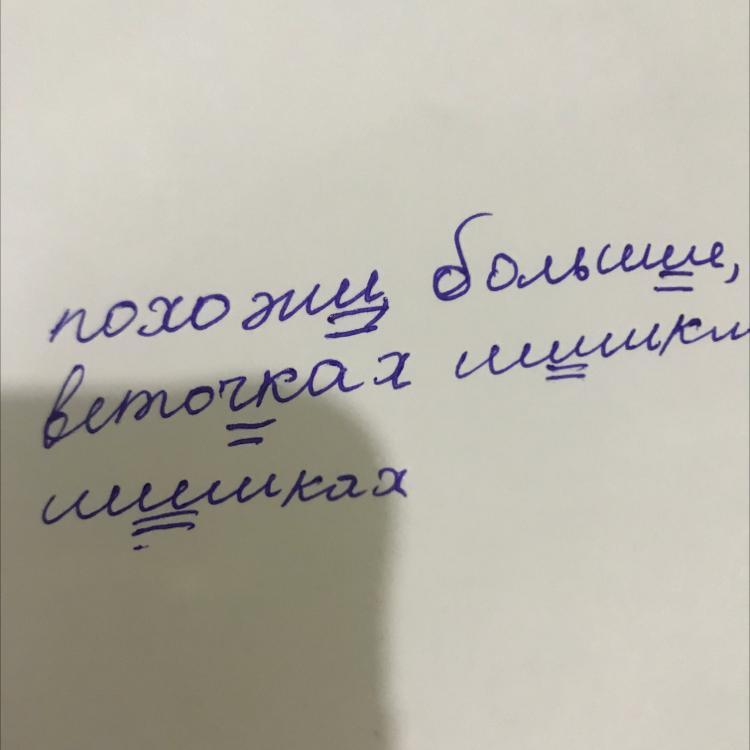 похожи большие,
веточках шишки
шишках